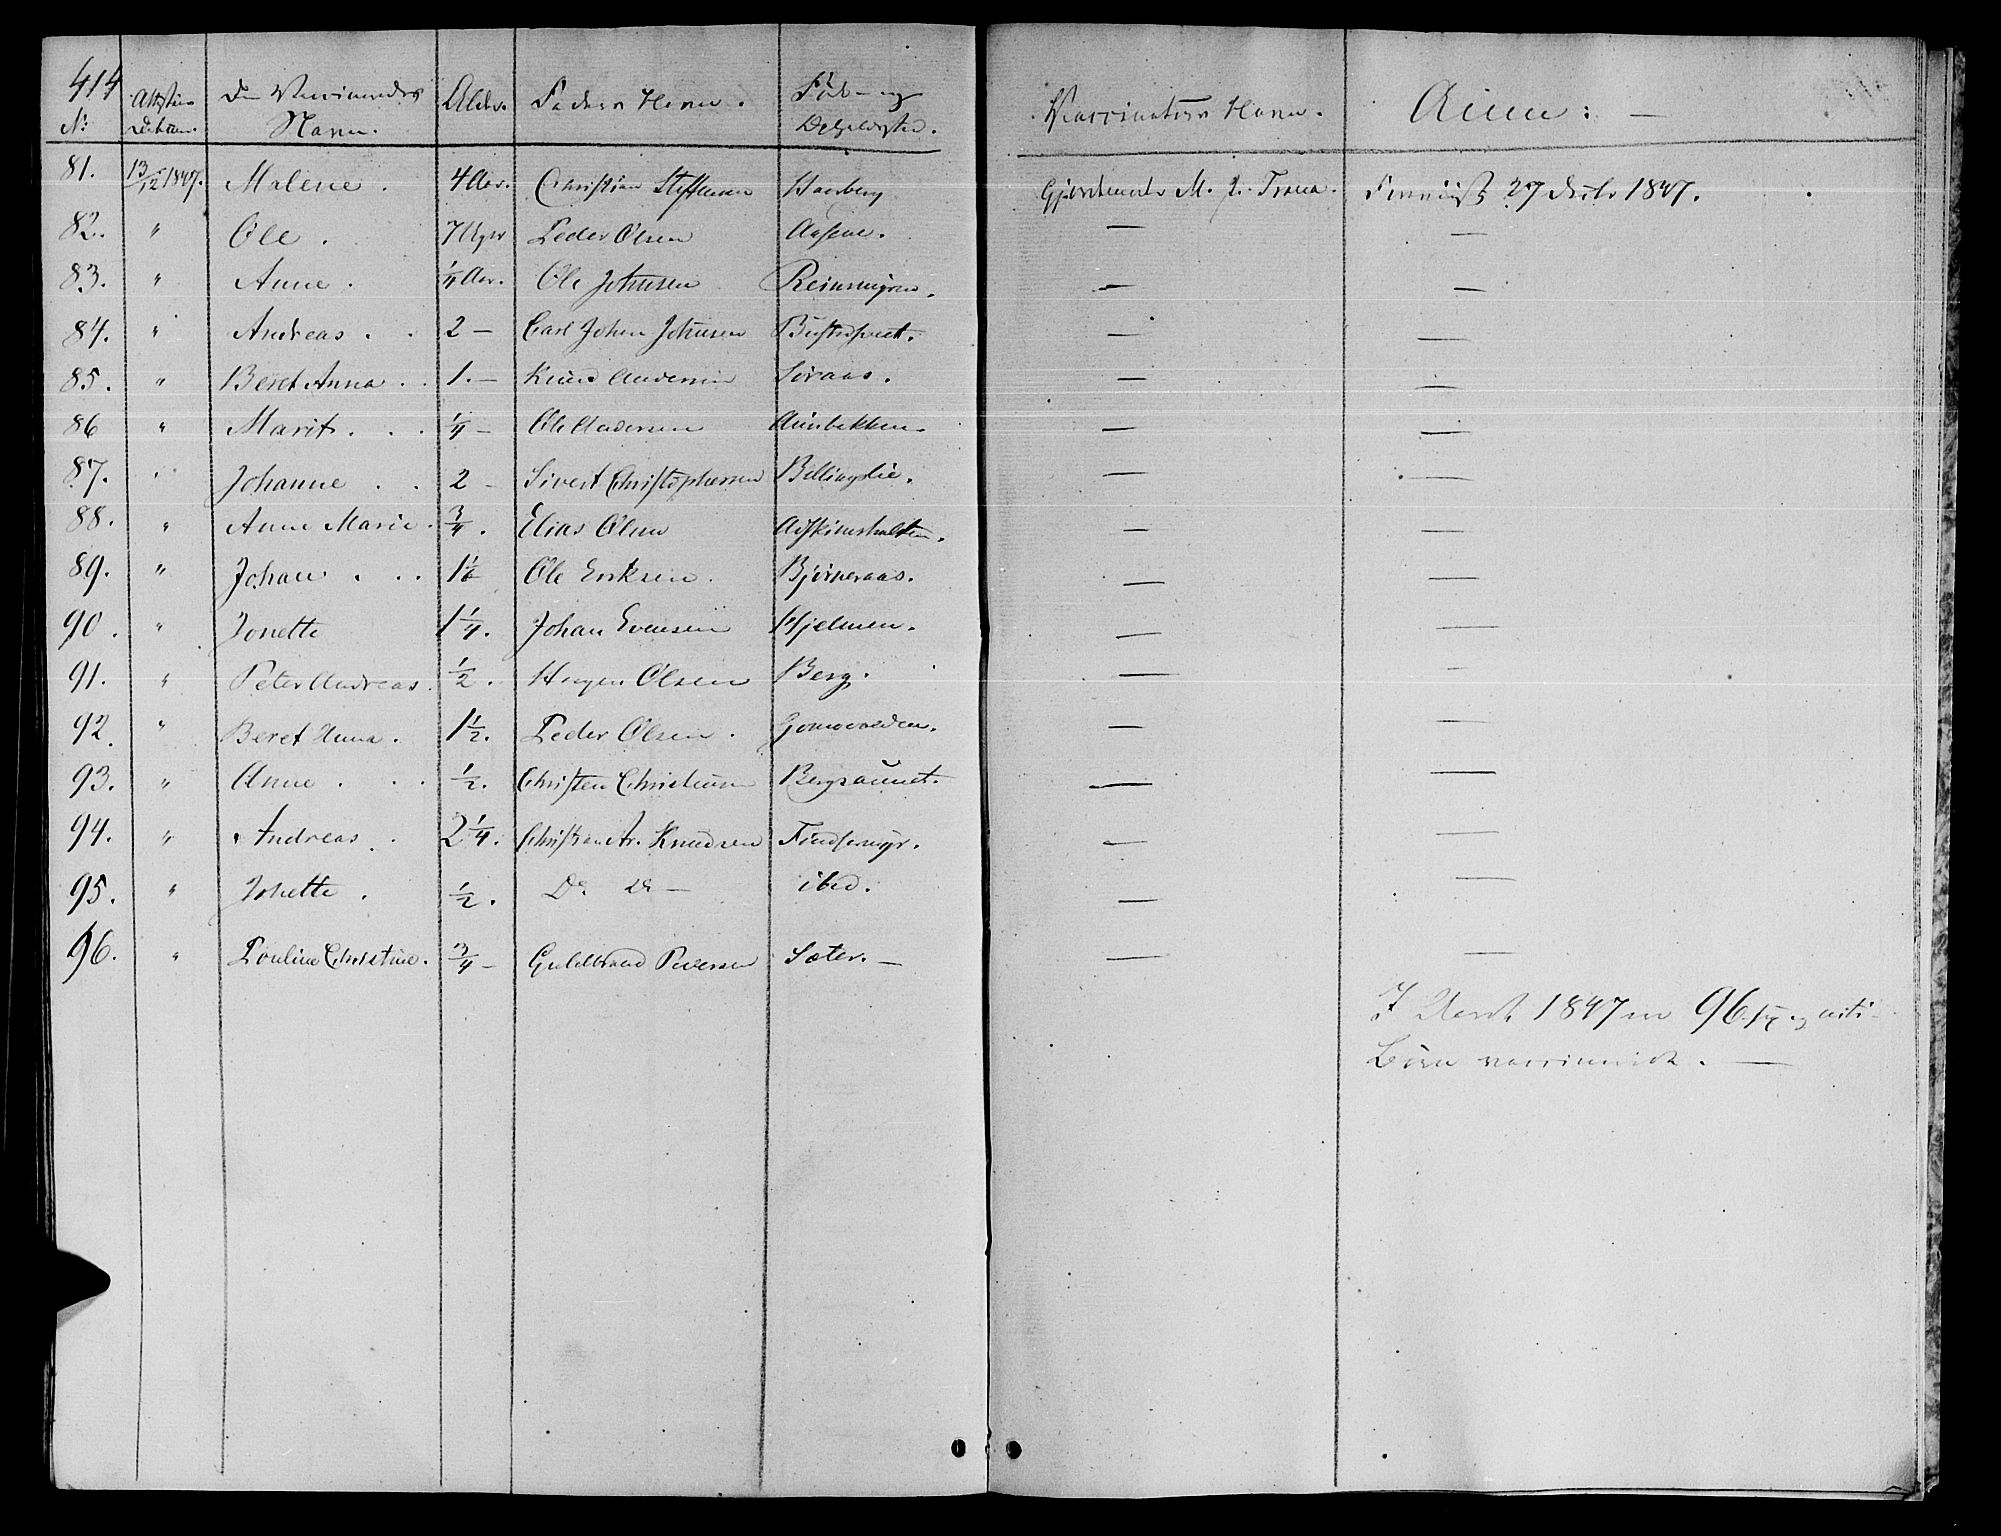 414
No: Attestens Datum. De Vaccineredes Navn. Alder. Faders Navn. Føde- og Opholdssted. Vaccinateurs Navn. Anm: —
81. 13/12 1847. Malene. 4 Aar. Christian Steffensen Haarberg Gjordemoder M. Trana. 27 1847.
82. " Ole. 7 Uger Peder Olsen Aasene. — —
83. " Anne. 1/4 Aar. Ole Johnsen Reinsmyren. — —
84. " Andreas. . 2 — Carl Johan Johnsen — —
85. " Beret Anna. . 1. — Knud Andersen Soraas. — —
86 " Marit. . . 1/4 — Ole Andersen — —
87. " Johanne . . 2 — Sivert Christophersen Bellinglie. — —
88. " Anne Marie. 3/4. Elias Olsen — —
89. " Johan . . . Ole Eriksen. Bjørneraas. — —
90. " Jonette 1 1/4. Johan Evensen Hjelmen. — —
91. " Peter Andreas. 1/2. Olsen Berg. — —
92. " Beret Anna. 1 1/2. Peder Olsen. — —
93. " Anne . . . 1/2. Christen Christensen Bergsaunet. — —
94. " Andreas . 2 1/4. Christian Ar. Knudsen — —
95. " Jonette. 1/2. Do do — ibid. — —
96. " Pauline Christine. 3/4 — Guldbrand Pedersen Sæter. — — —
I Aaret 1847 er 96
Børn vaccinerede. —